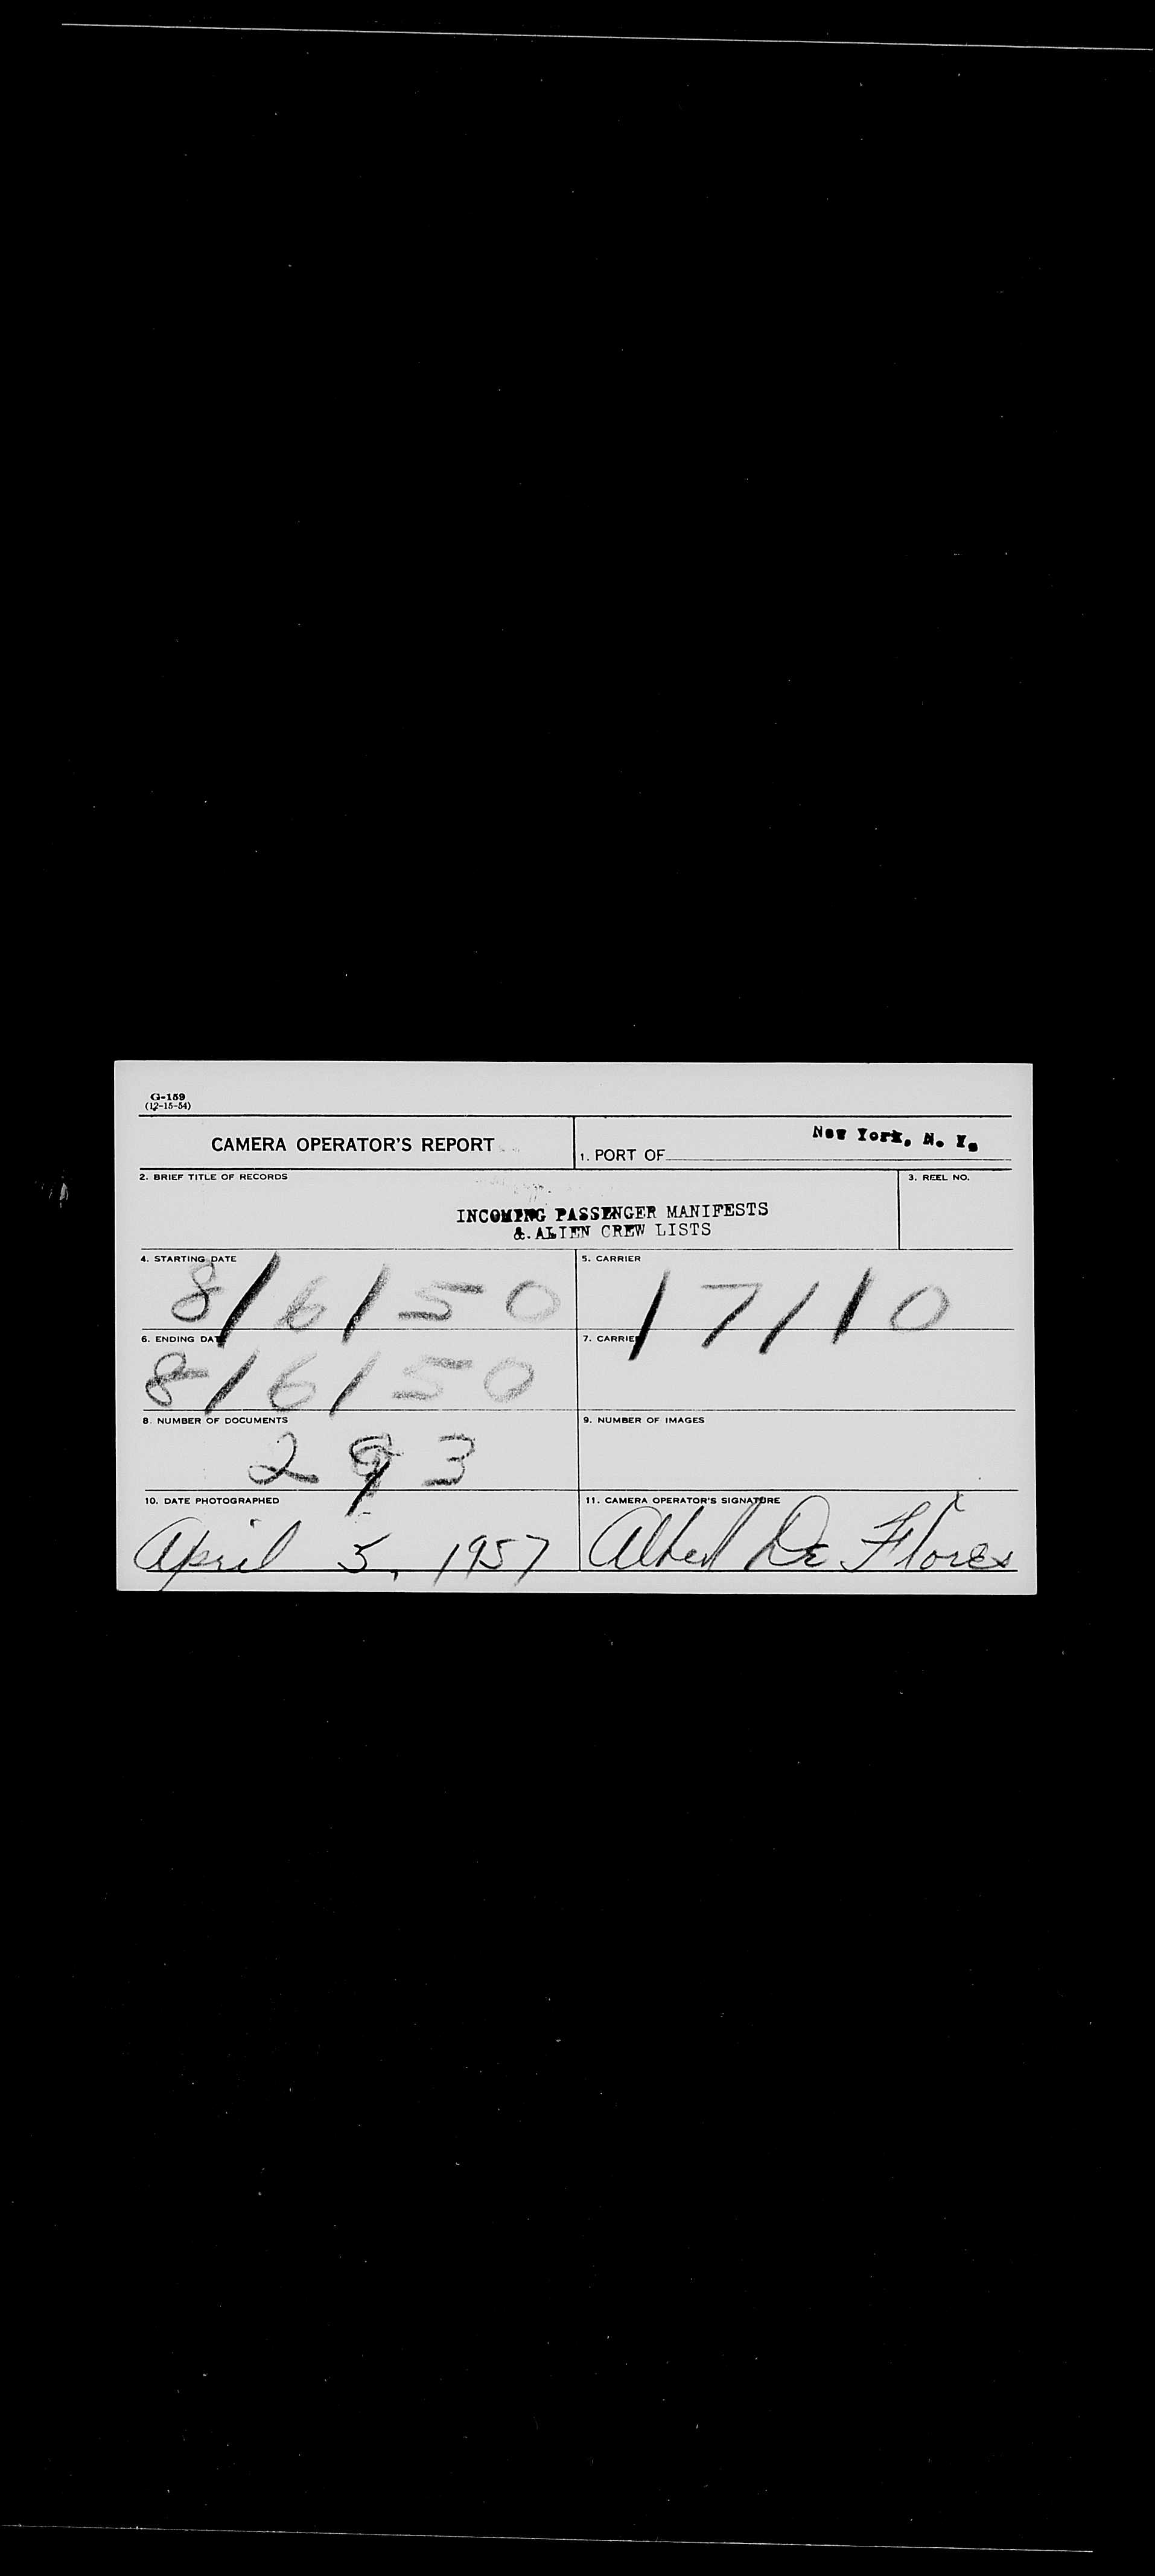 G-159
(12-15-54)
CAMERA OPERATOR'S REPORT
1. PORT OF New York, N. Y.
2. BRIEF TITLE OF RECORDS
3. REEL NO.
INCOMING PASSENGER MANIFESTS
& ALIEN CREW LISTS
4. STARTING DATE
8/6/50
5. CARRIER
17110
6. ENDING DATE
8/6/50
7. CARRIER
8. NUMBER OF DOCUMENTS
293
9. NUMBER OF IMAGES
10. DATE PHOTOGRAPHED
April 5, 1957
11. CAMERA OPERATOR'S SIGNATURE
Albert De Flores